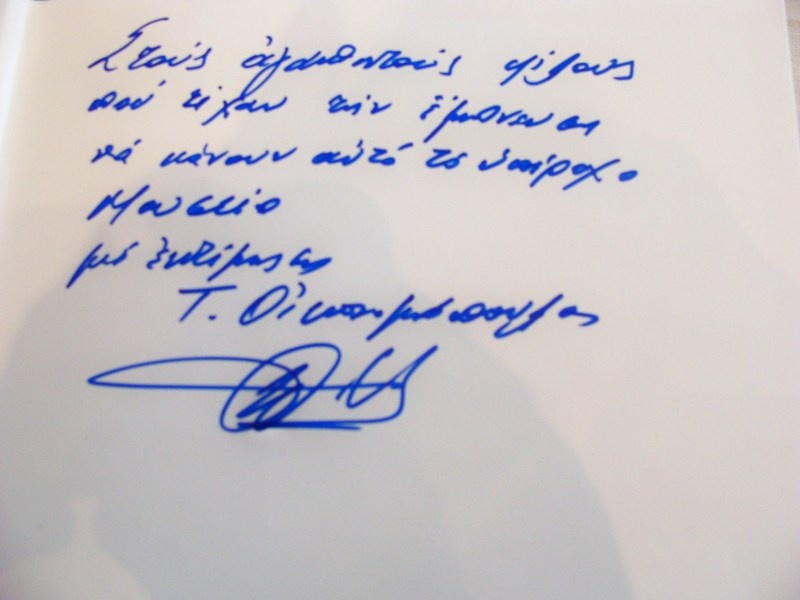 Στούς ἀγαπητούς φίλους
πού εἶχαν τήν ἔμπνευση
νά κάνουν αὐτό τό ὑπέροχο
Μουσεῖο
μέ ἐκτίμηση
Τ. Οἰκονομόπουλος